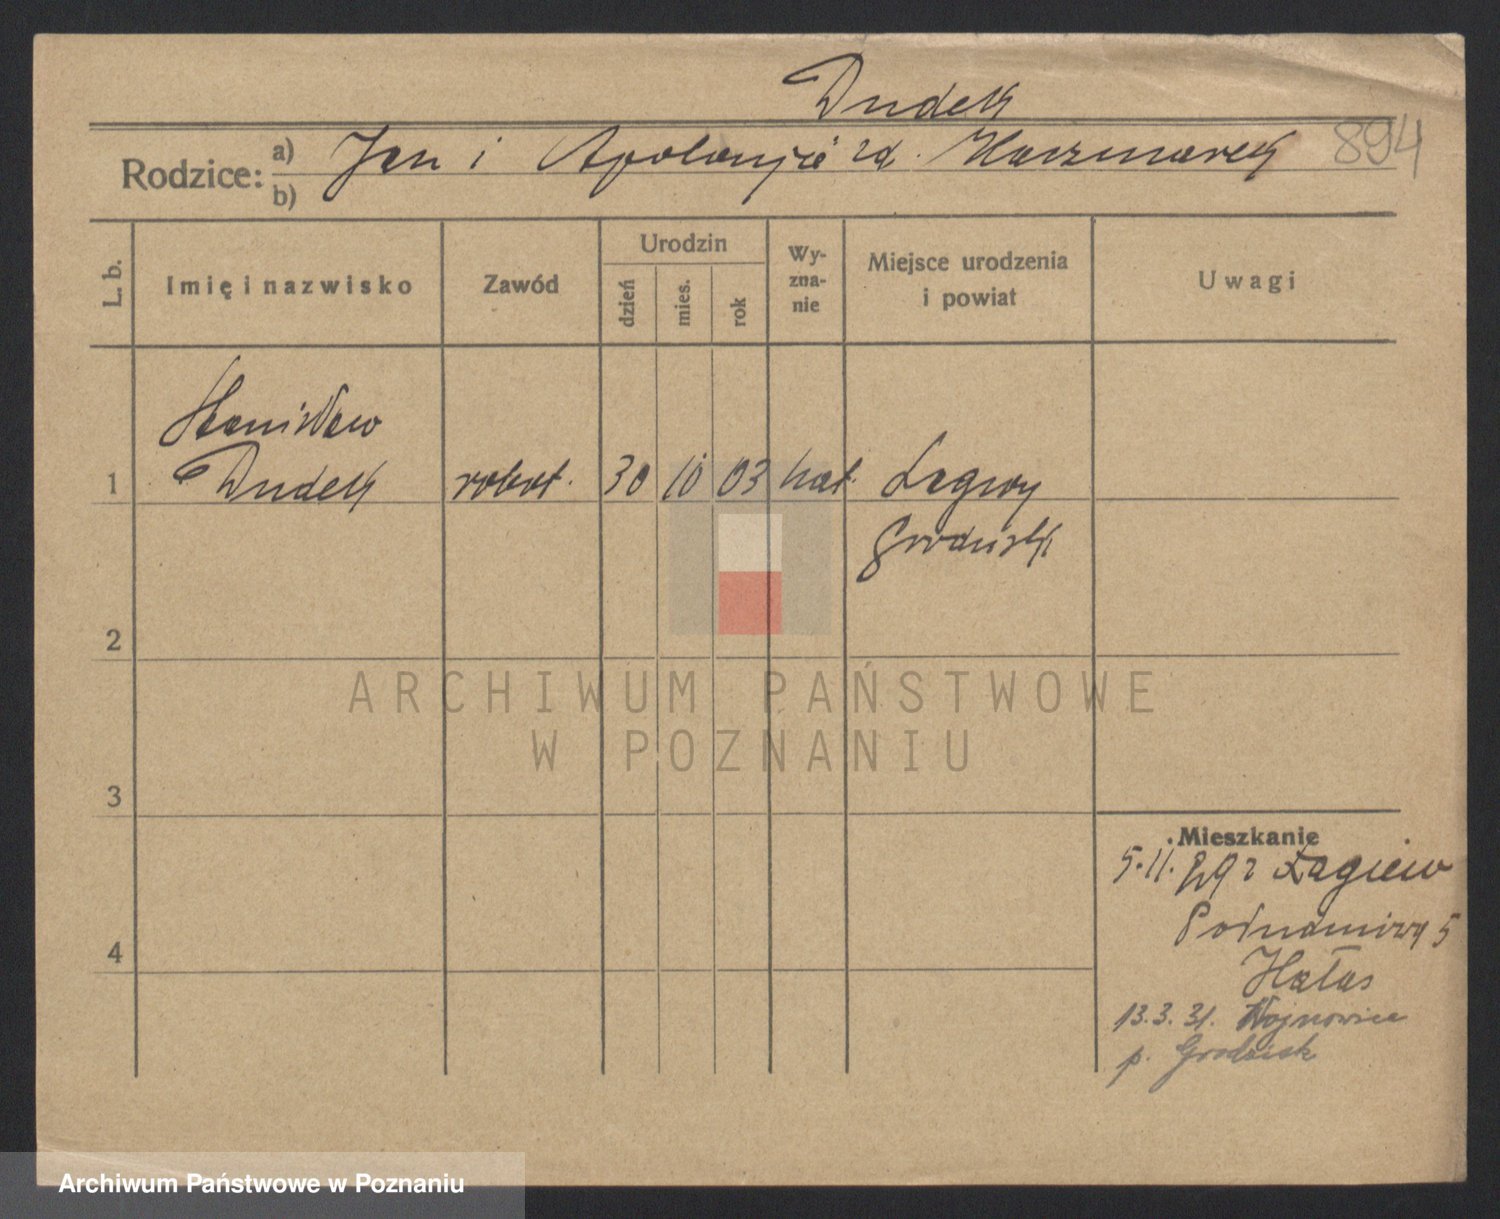 Dudek
Rodzice: a) Jan i Apolonja zd. Kaczmarek 894
b)
L. b. Imię i nazwisko Zawód Urodzin dzień mies. rok Wy-zna-nie Miejsce urodzenia i powiat Uwagi
Stanisław
1 Dudek robot. 30 10 03 kat.
Grodzisk
2
ARCHIWUM PAŃSTWOWE
W POZNANIU
3
Mieszkanie
5.11. 29 z
5
4 Hałas
13.3.31. Wojnowice
p. Grodzisk
Archiwum Państwowe w Poznaniu